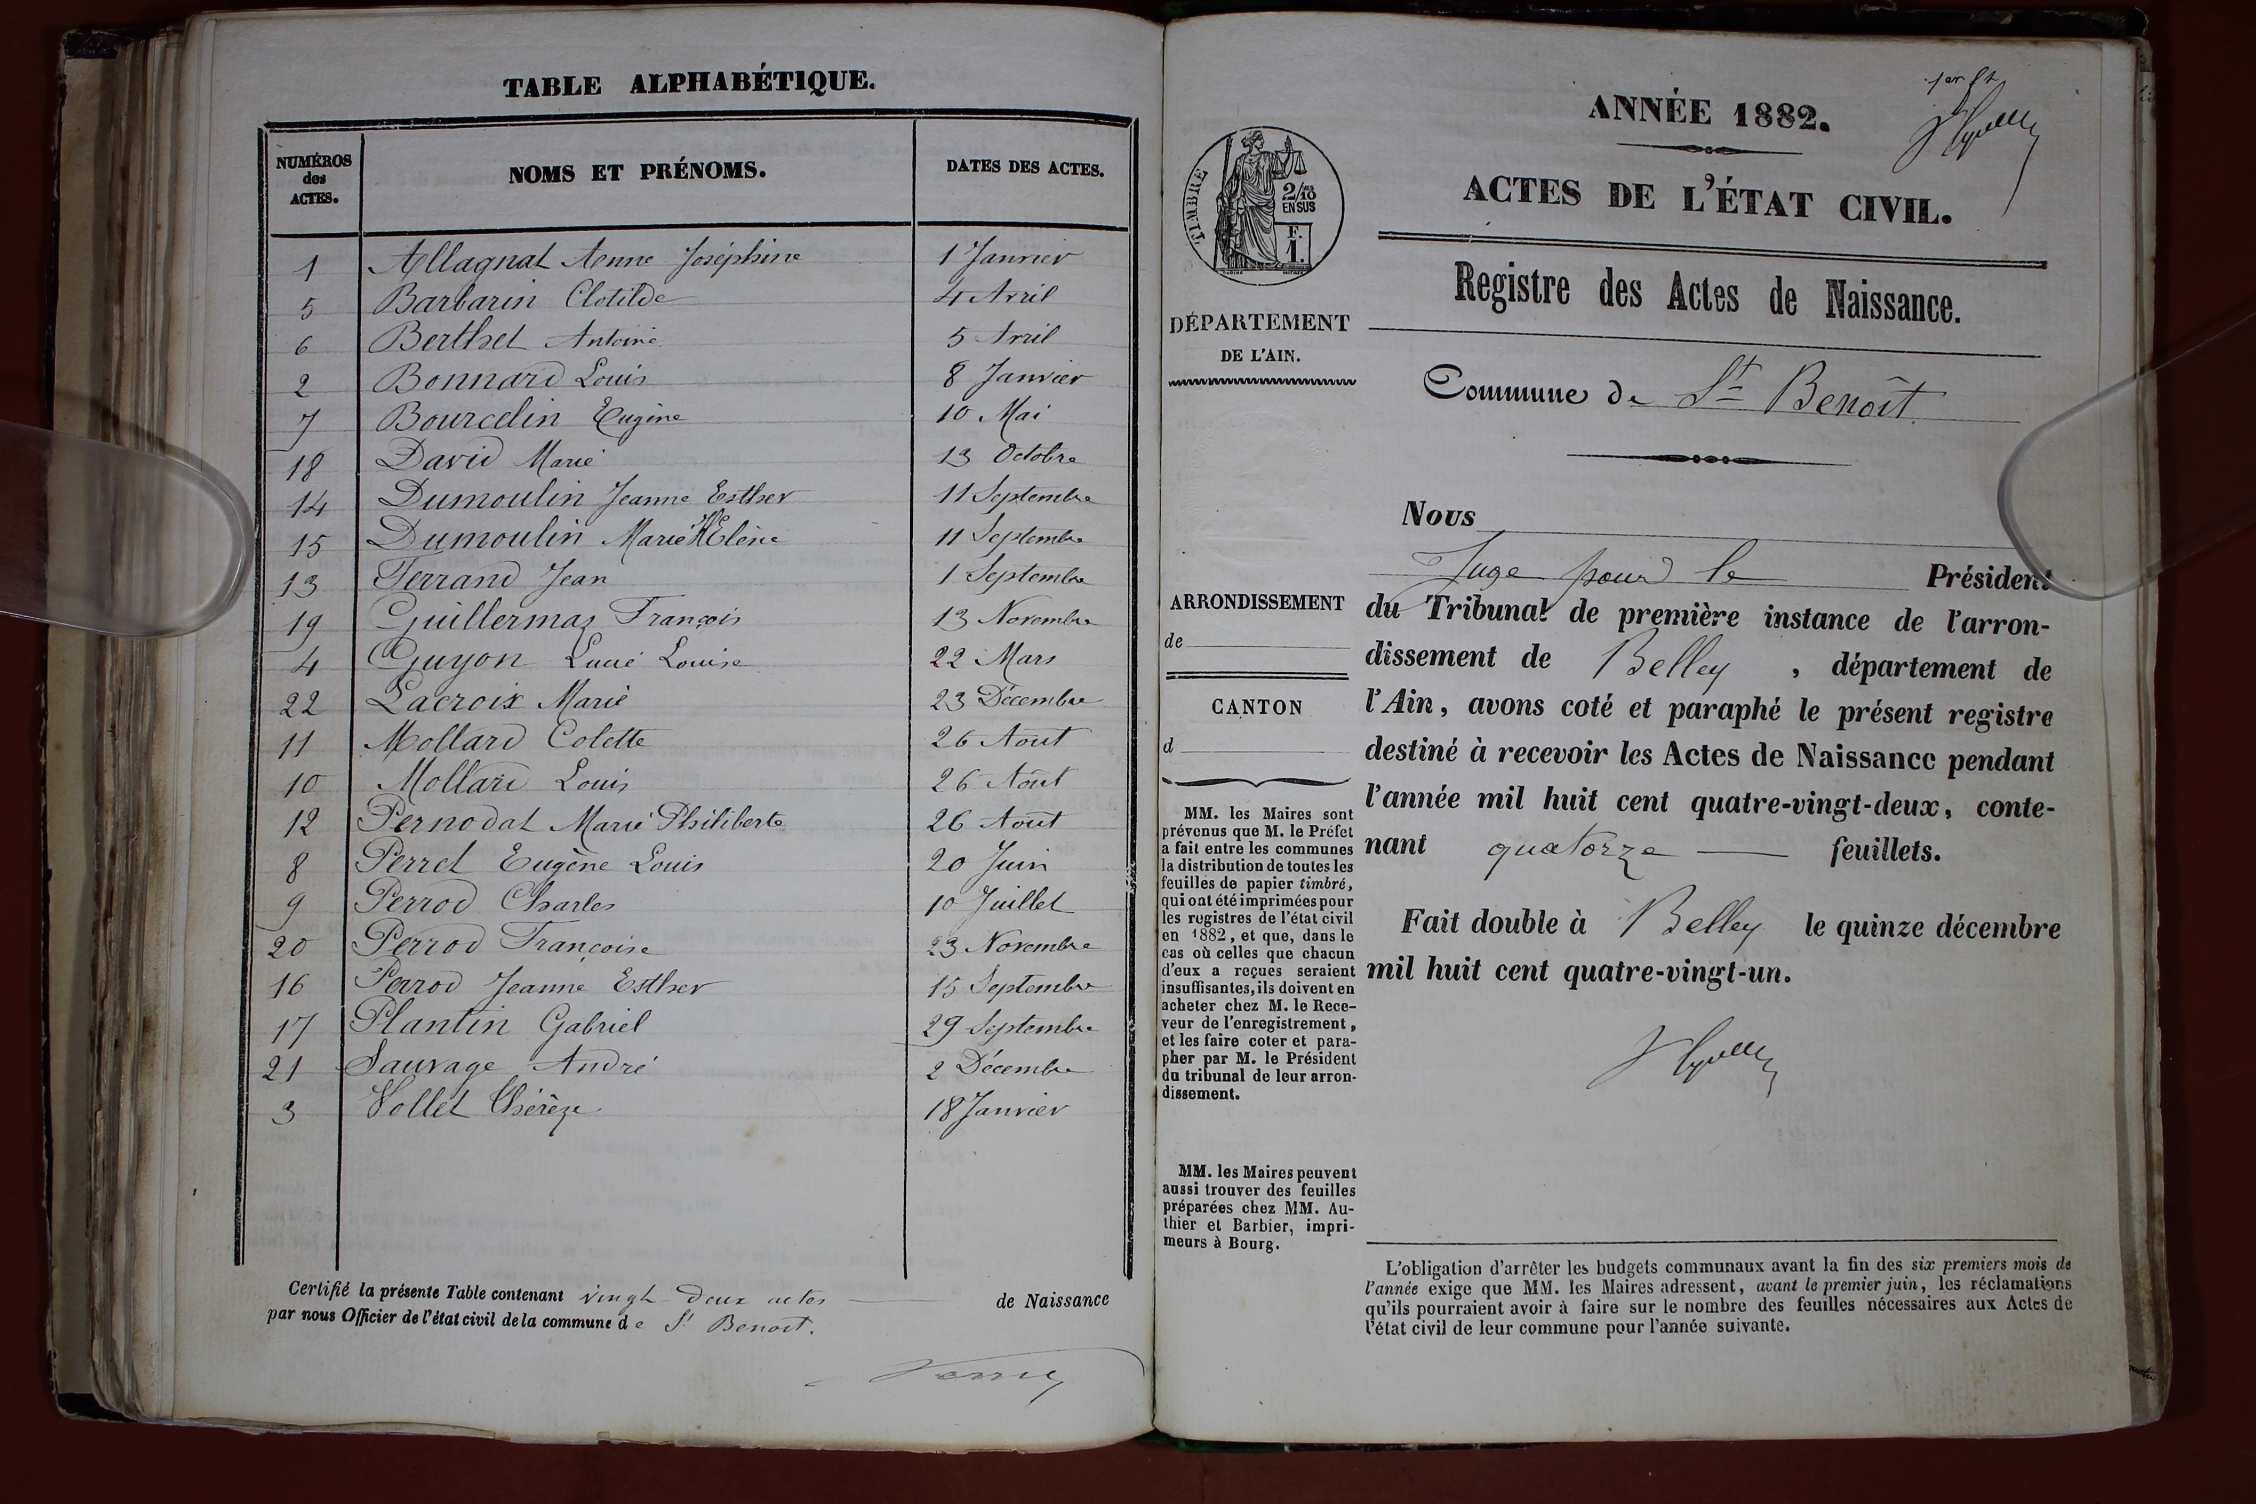 TABLE ALPHABÉTIQUE.
NUMÉROS des ACTES. NOMS ET PRÉNOMS. DATES DES ACTES.
1 Allagnat Anne Joséphine 1 Janvier
5 Barbarin Clotilde 4 Avril
6 Berthet Antoine 5 Avril
2 Bonnard Louis 8 Janvier
7 Bourcelin Eugène 10 Mai
18 David Marie 13 Octobre
14 Dumoulin Jeanne Esther 11 Septembre
15 Dumoulin Marie Hélène 11 Septembre
13 Ferrand Jean 1 Septembre
19 Guillermas François 13 Novembre
4 Guyon Lucie Louise 22 Mars
22 Lacroix Marie 23 Décembre
11 Mollard Colette 26 Aout
10 Mollard Louis 26 Aout
12 Pernodat Marie Philiberte 26 Aout
8 Perret Eugène Louis 20 Juin
9 Perrod Charles 10 Juillet
20 Perrod Françoise 23 Novembre
16 Perrod Jeanne Esther 15 Septembre
17 Plantin Gabriel 29 Septembre
21 Sauvage André 2 Décembre
3 Vollet Thérèze 18 Janvier
Certifié la présente Table contenant vingt-deux actes de Naissance
par nous Officier de l'état civil de la commune de St Benoit.
1er ft
ANNÉE 1882.
ACTES DE L'ÉTAT CIVIL.
TIMBRE
2/10
EN SUS
F.
1.
Registre des Actes de Naissance.
DÉPARTEMENT
DE L'AIN.
Commune de St Benoît.
Nous
Juge pour le Président
du Tribunal de première instance de l'arron-
dissement de Belley, département de
l'Ain, avons coté et paraphé le présent registre
destiné à recevoir les Actes de Naissance pendant
l'année mil huit cent quatre-vingt-deux, conte-
nant quatorze feuillets.
Fait double à Belley le quinze décembre
mil huit cent quatre-vingt-un.
ARRONDISSEMENT
de
CANTON
d
MM. les Maires sont
prévenus que M. le Préfet
a fait entre les communes
la distribution de toutes les
feuilles de papier timbré,
qui ont été imprimées pour
les registres de l'état civil
en 1882, et que, dans le
cas où celles que chacun
d'eux a reçues seraient
insuffisantes, ils doivent en
acheter chez M. le Rece-
veur de l'enregistrement,
et les faire coter et para-
pher par M. le Président
du tribunal de leur arron-
dissement.
MM. les Maires peuvent
aussi trouver des feuilles
préparées chez MM. Au-
thier et Barbier, impri-
meurs à Bourg.
L'obligation d'arrêter les budgets communaux avant la fin des six premiers mois de
l'année exige que MM. les Maires adressent, avant le premier juin, les réclamations
qu'ils pourraient avoir à faire sur le nombre des feuilles nécessaires aux Actes de
l'état civil de leur commune pour l'année suivante.